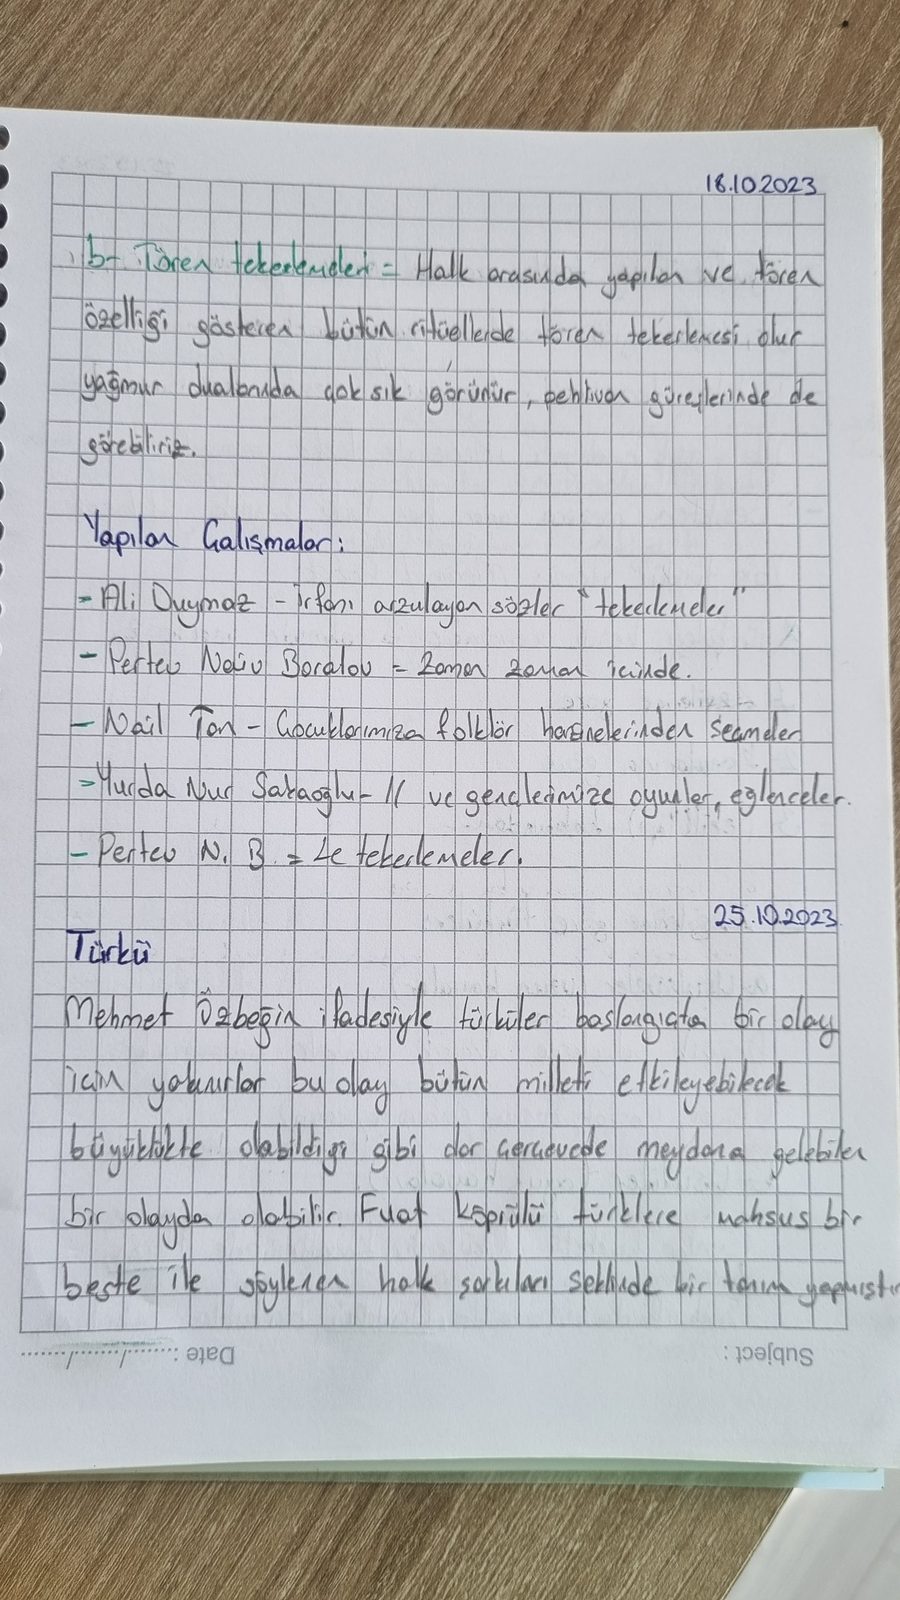 18.10.2023
b- Tören tekerlemeleri = Halk arasında yapılan ve tören
özelliği gösteren bütün ritüellerde tören tekerlemesi olur
yağmur dualarında çok sık görünür, pehlivan güreşlerinde de
görebiliriz.
Yapılan Çalışmalar:
- Ali Duymaz - İrfanı arzulayan sözler "tekerlemeler"
- Pertev Naili Boratav = Zaman zaman içinde.
- Nail Tan - Çocuklarımıza folklör hazinelerinden seçmeler
- Nur Sakaoğlu - // ve gençlerimize oyunlar, eğlenceler.
- Pertev N. B. = Le tekerlemeler.
25.10.2023
Türkü
Mehmet Özbeğin ifadesiyle türküler başlangıçta bir olay
için yakınırlar bu olay bütün milleti etkileyebilecek
büyüklükte olabildiği gibi dar çerçevede meydana gelebilen
bir olayda olabilir. Fuat Köprülü türklere mahsus bir
beste ile söylenen halk şarkıları şeklinde bir tanım yapmıştır
Subject :
Date : ......./......./.......